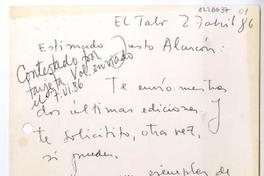 El Tabo 27 abril 86
Estimado Justo Alarcón:
Contestado por
tarjeta Vol. enviado
el 7.VI.86
Te envío nuestras
dos últimas ediciones y
te solicito, otra vez,
si puedes,
ejemplares de